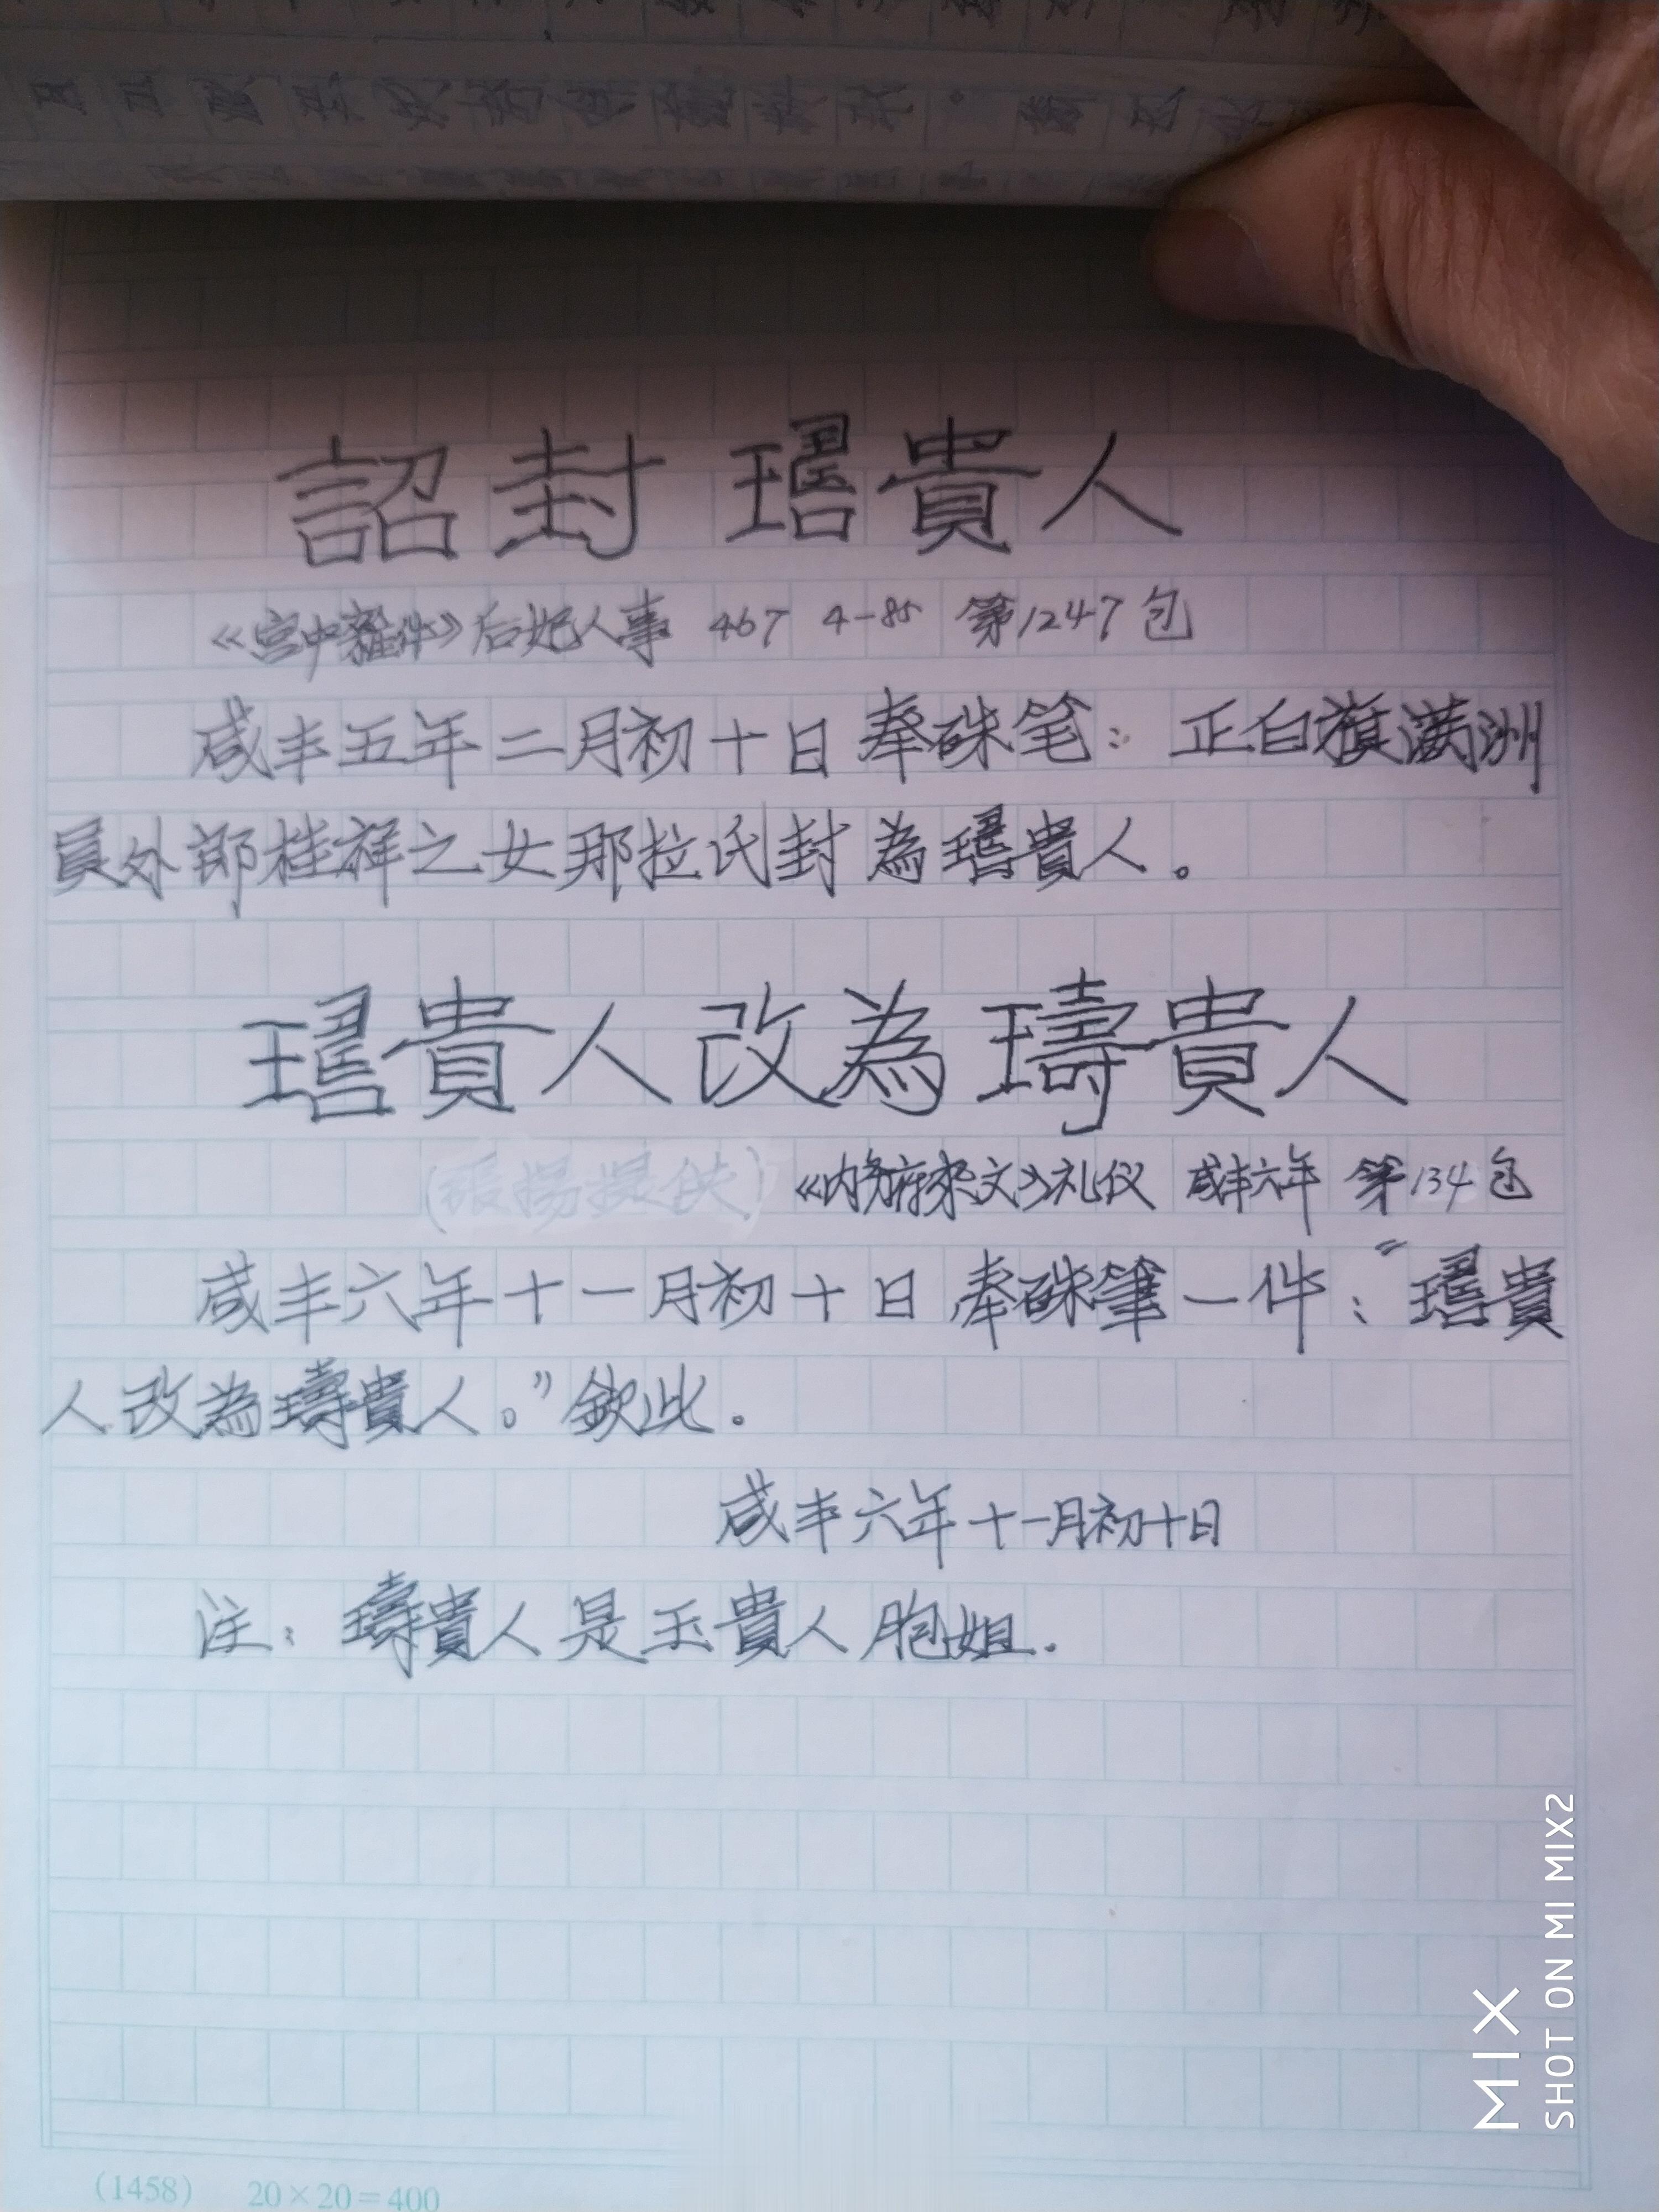 詔封瑠貴人
《宫中雜件》后妃人事 467 4-85 第1247包
咸丰五年二月初十日奉硃笔：正白旗满洲
員外郎桂祥之女那拉氏封為瑠貴人。
貴人改為璹貴人
《内务府杂文》礼仪 咸丰六年 第134包
咸丰六年十一月初十日奉硃筆一件：“貴
人改為璹貴人。”欽此.
咸丰六年十一月初十日
注：璹貴人是玉貴人胞姐.
(1458) 20×20=400
MIX
SHOT ON MI MIX2